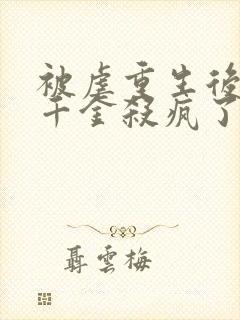 被虐重生後
千金殺瘋了
聶雲梅